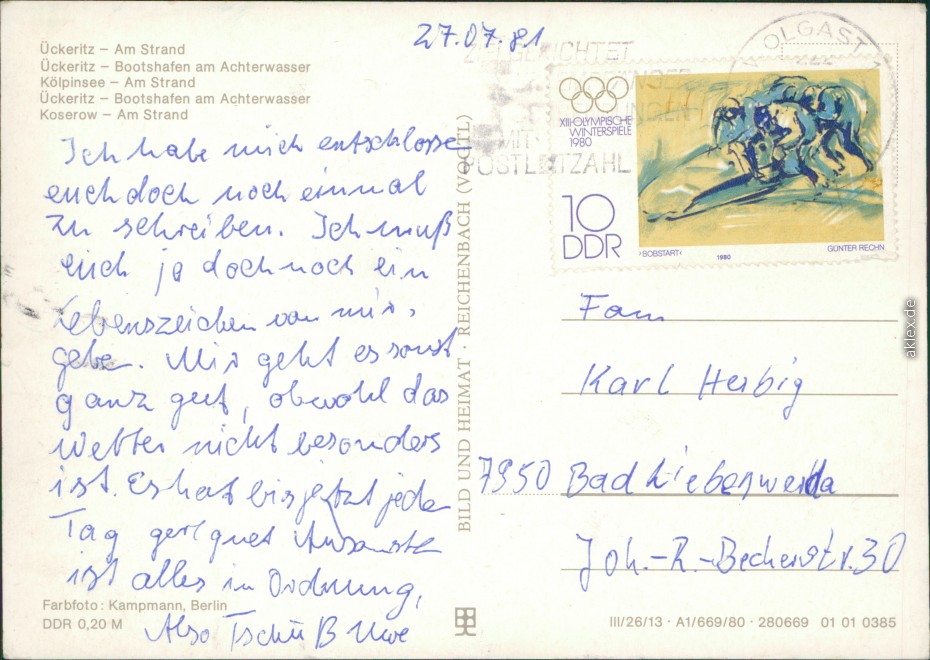 27.07.81
Ückeritz – Am Strand
Ückeritz – Bootshafen am Achterwasser
Kölpinsee – Am Strand
Ückeritz – Bootshafen am Achterwasser
Koserow – Am Strand
Ich habe mich entschlosse
euch doch noch einmal
zu schreiben. Ich muß
euch ja doch noch ein
Lebenszeichen von mir,
gebe. Mir geht es sonst
ganz gut, obwohl das
Wetter nicht besonders
ist. Es hat bis jetzt jede
Tag geregnet
ist alles in Ordnung,
Also Tschüß Uwe
Farbfoto: Kampmann, Berlin
DDR 0,20 M
BILD UND HEIMAT · REICHENBACH (VOGTL)
OLGAST
MIT
POSTLEITZAHL
XIII·OLYMPISCHE
WINTERSPIELE
1980
10
DDR
›BOBSTART‹
1980
GÜNTER RECHN
Fam
Karl Herbig
7950 Bad Liebenwerda
Joh.-R.-Becherstr. 30
III/26/13 · A1/669/80 · 280669 01 01 0385
aklex.de